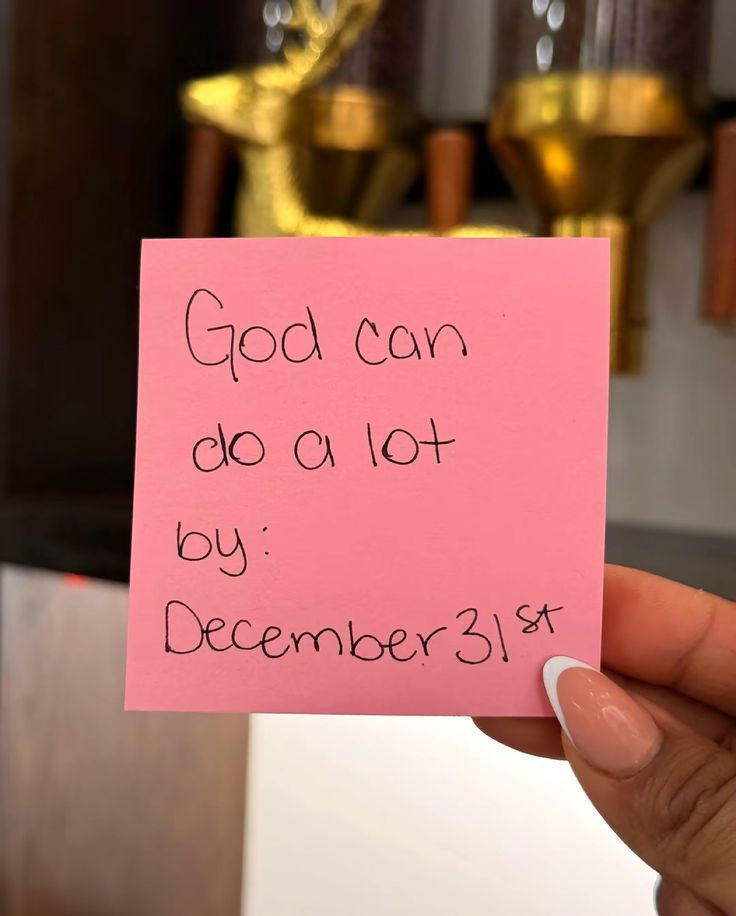 God can
do a lot
by:
December 31st